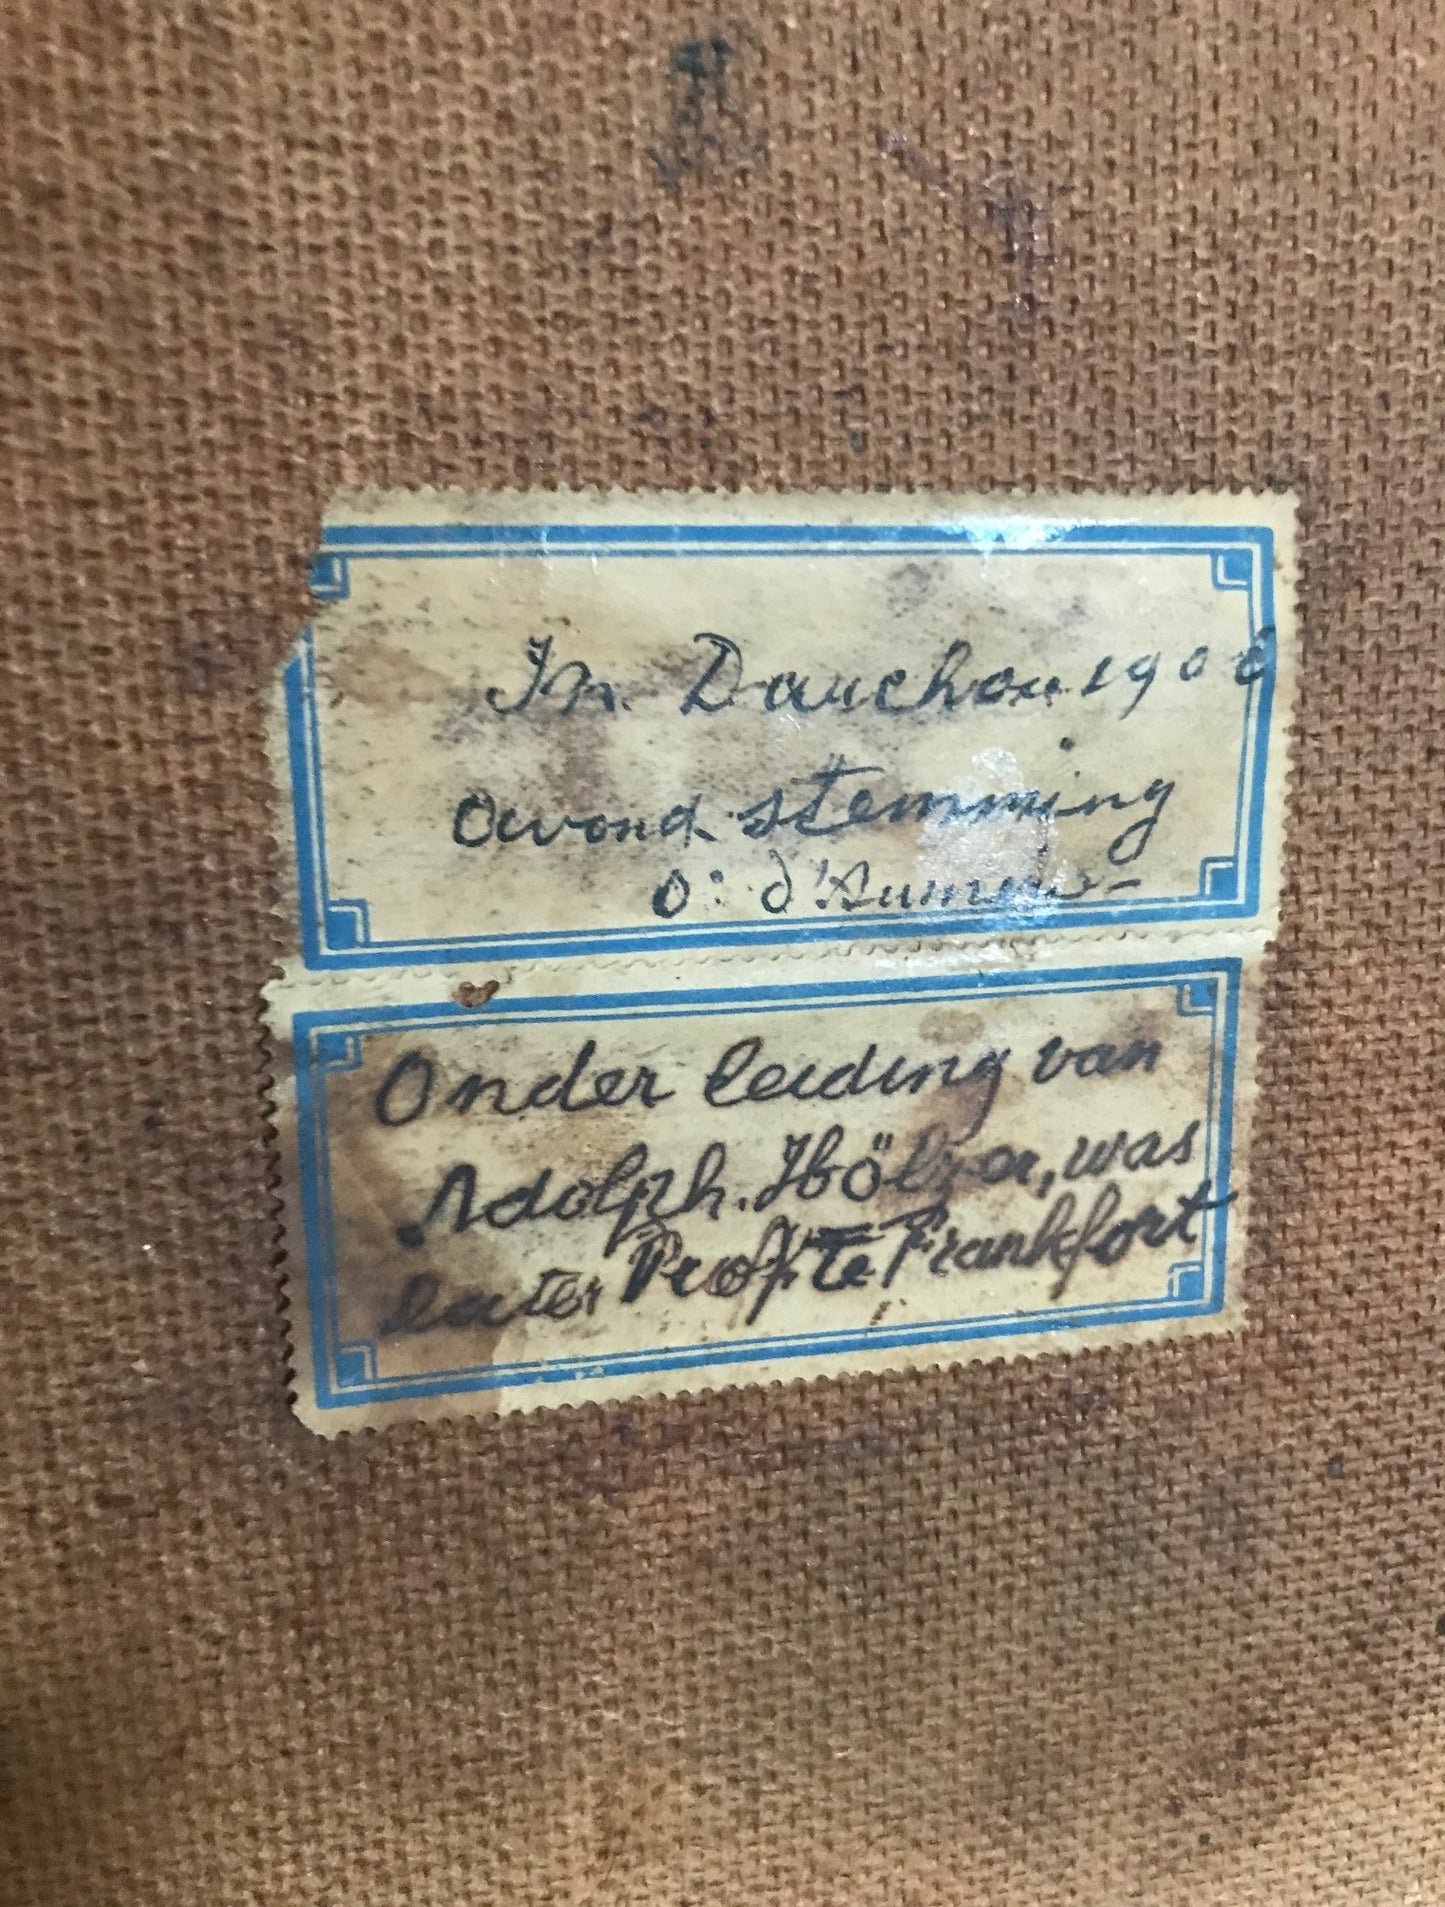 In Dauchou 1906
Avond stemming
O: d'Aumerie
Onder leiding van
Adolph. Hölzer, was
later Prof. te Frankfort